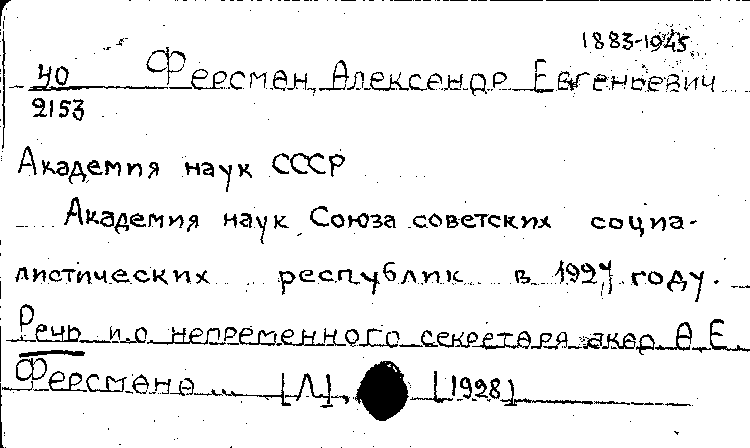 1883-1945
40 Ферсман, Александр Евгеньевич
2153
Академия наук СССР
Академия наук Союза советских социа-
листических республик в 1927 году.
Речь и.о. непременного секретаря акад. А.Е.
Ферсмана ... [Л], [1928]